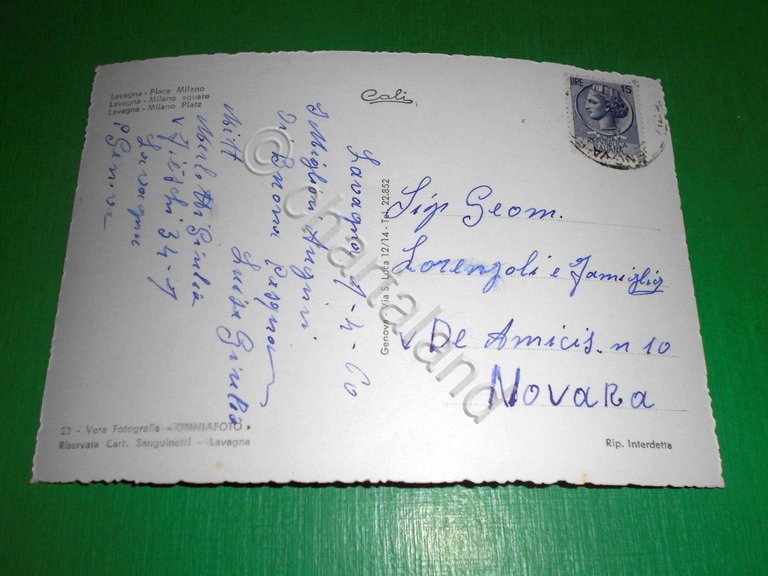 Lavagna - Place Milano
Lavagna - Milano square
Lavagna - Milano Platz
Cali
LIRE 15
Lavagna 7-4-60
I Migliori Auguri
di Buona Pasqua
Luisa Giulio
Mitt
Giulia
V Fieschi 34-7
Lavagna
Genova - Via S. Luca 12/14 - Tel. 22.852
Sig Geom.
Lorenzoli e Famiglia
V De Amicis. n 10
NOVARA
23 - Vera Fotografia «OMNIAFOTO»
Riservata Cart. Sanguineti - Lavagna
Rip. Interdetta
© chartaland